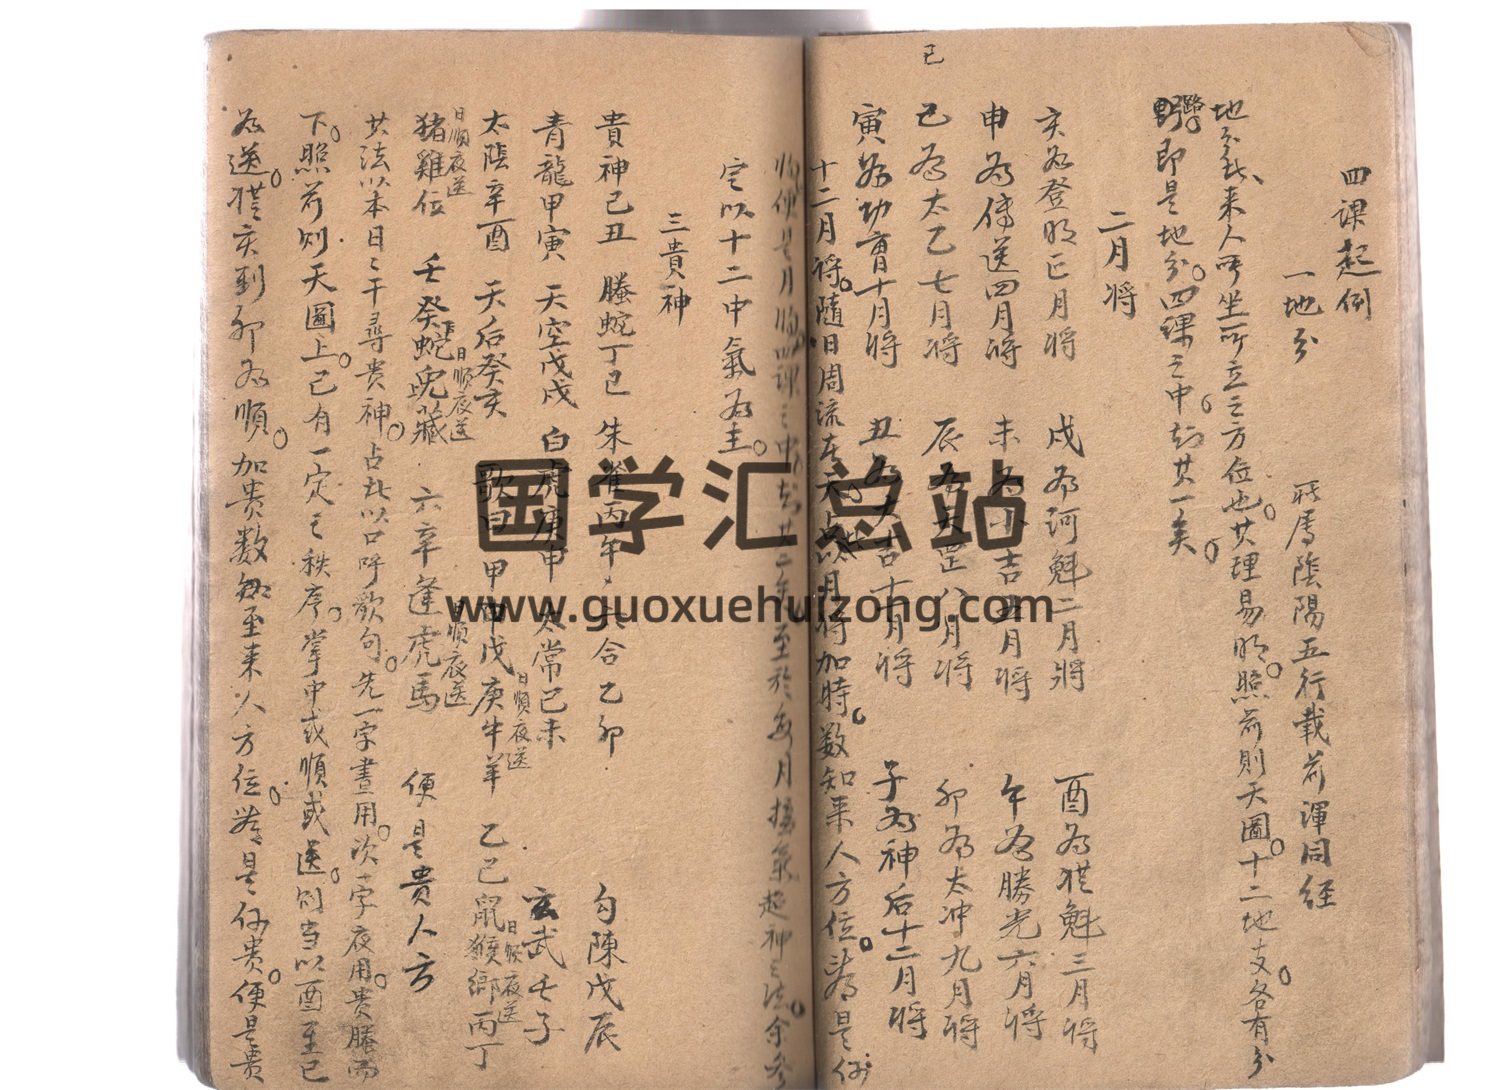 四課起例
一地分 所属陰陽五行載前渾同經
地分者、来人所坐所立之方位也。其理易明。照前則天圖。十二地支各有分
野。即是地分。四課之中。其一矣。
二月将
亥為登明正月将 戌為河魁二月將 酉為從魁三月将
申為傳送四月将 未為小吉五月将 午為勝光六月将
巳為太乙七月将 辰為天罡八月将 卯為太冲九月将
寅為功曹十月将 丑為大吉十一月将 子為神后十二月将
巳
十二月将。隨日周流在天。占以月将加時。数知来人方位。若是何
将便是月将四課之中其二 至於每月 氣起神之法。余参
定以十二中氣為主。
三貴神
貴神己丑 螣蛇丁巳 朱雀丙午 六合乙卯 勾陳戊辰
青龍甲寅 天空戊戌 白虎庚申 太常己未 玄武壬子
太陰辛酉 天后癸亥 歌曰 甲戊庚牛羊 日順夜送 乙己鼠猴鄉 日順夜送 丙丁
猪雞位 日順夜送 壬癸蛇兎藏 日順夜送 六辛逢虎馬 日順夜送 便是貴人方
其法以本日之干尋贵神。占此以呼歌句。先一字晝用。次一字夜用。貴螣而
下。照前则天圖上。已有一定之秩序。掌中或順或送。则当以酉至巳
為送。從亥到卯為順。加贵数至来人方位。若是何贵。便是贵
国学汇总站
www.guoxuehuizong.com